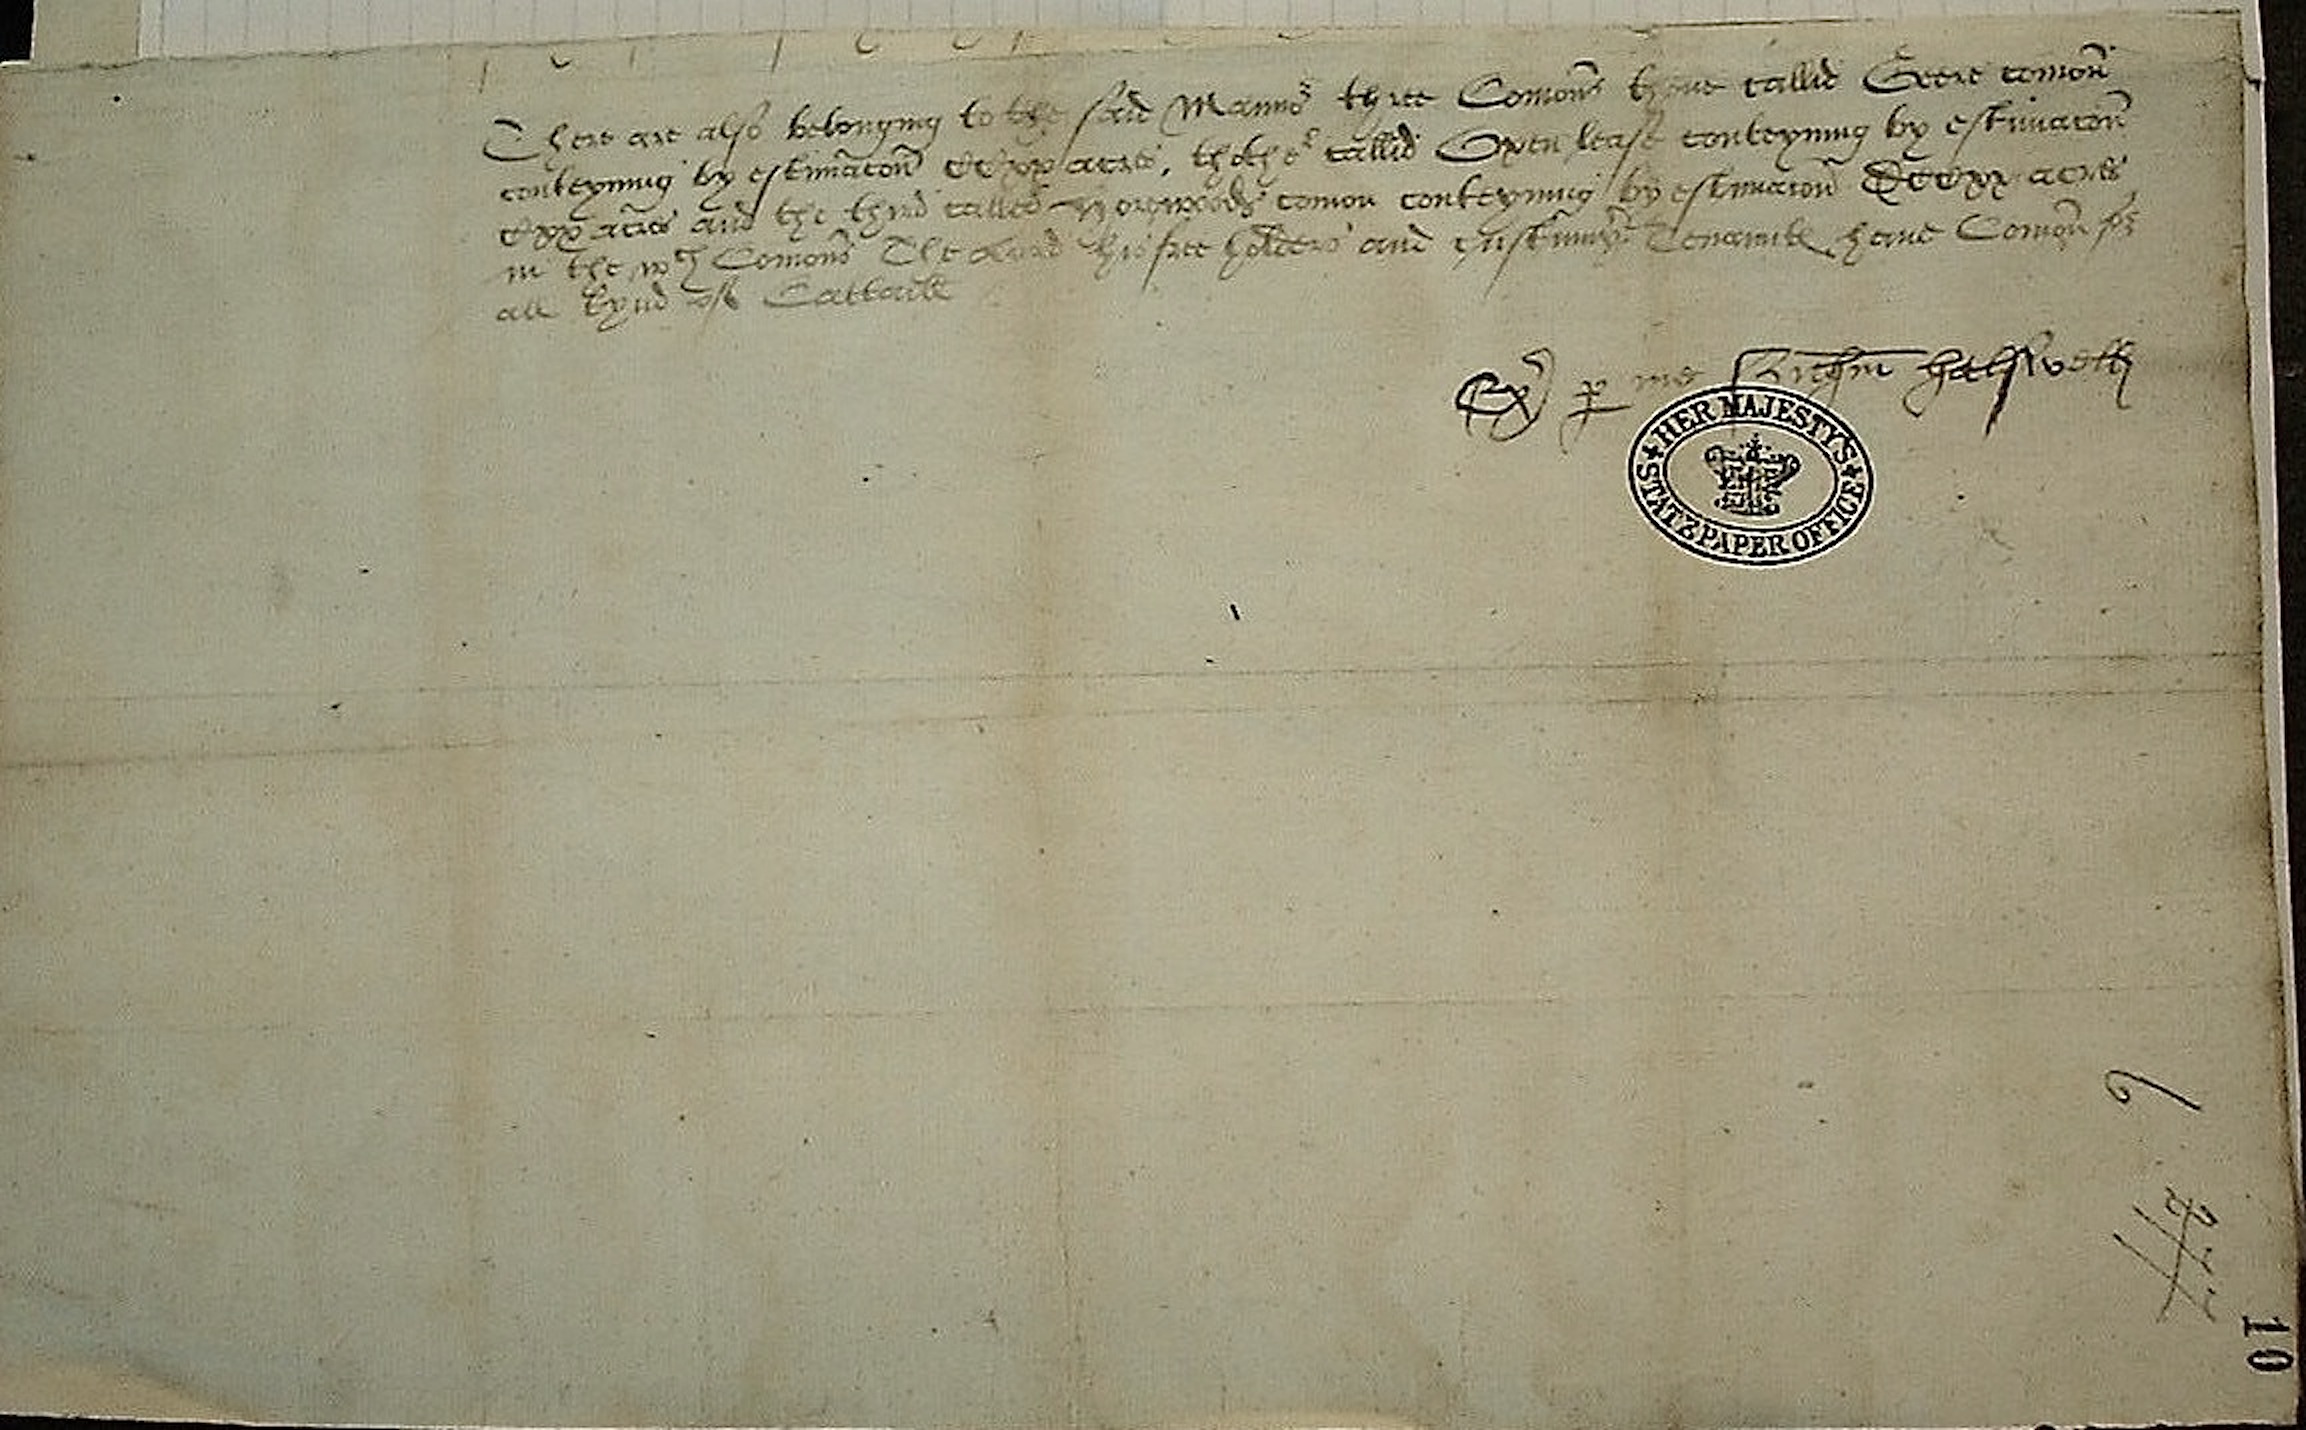 There are also belonging to the said Mannor three Comons thone callid Gore comon
conteynnig by estimacon CCxx acres, thother callid Oxen lease conteynnig by estimacon
Cxx acres and the third called comon conteynnig by estimacon acres
in the wch Comons The Lord his free holders and custumary Tenauntes have Comon for
all kynd of Cattaill
Ex per me halswell
HER MAJESTY'S
STATE PAPER OFFICE
10